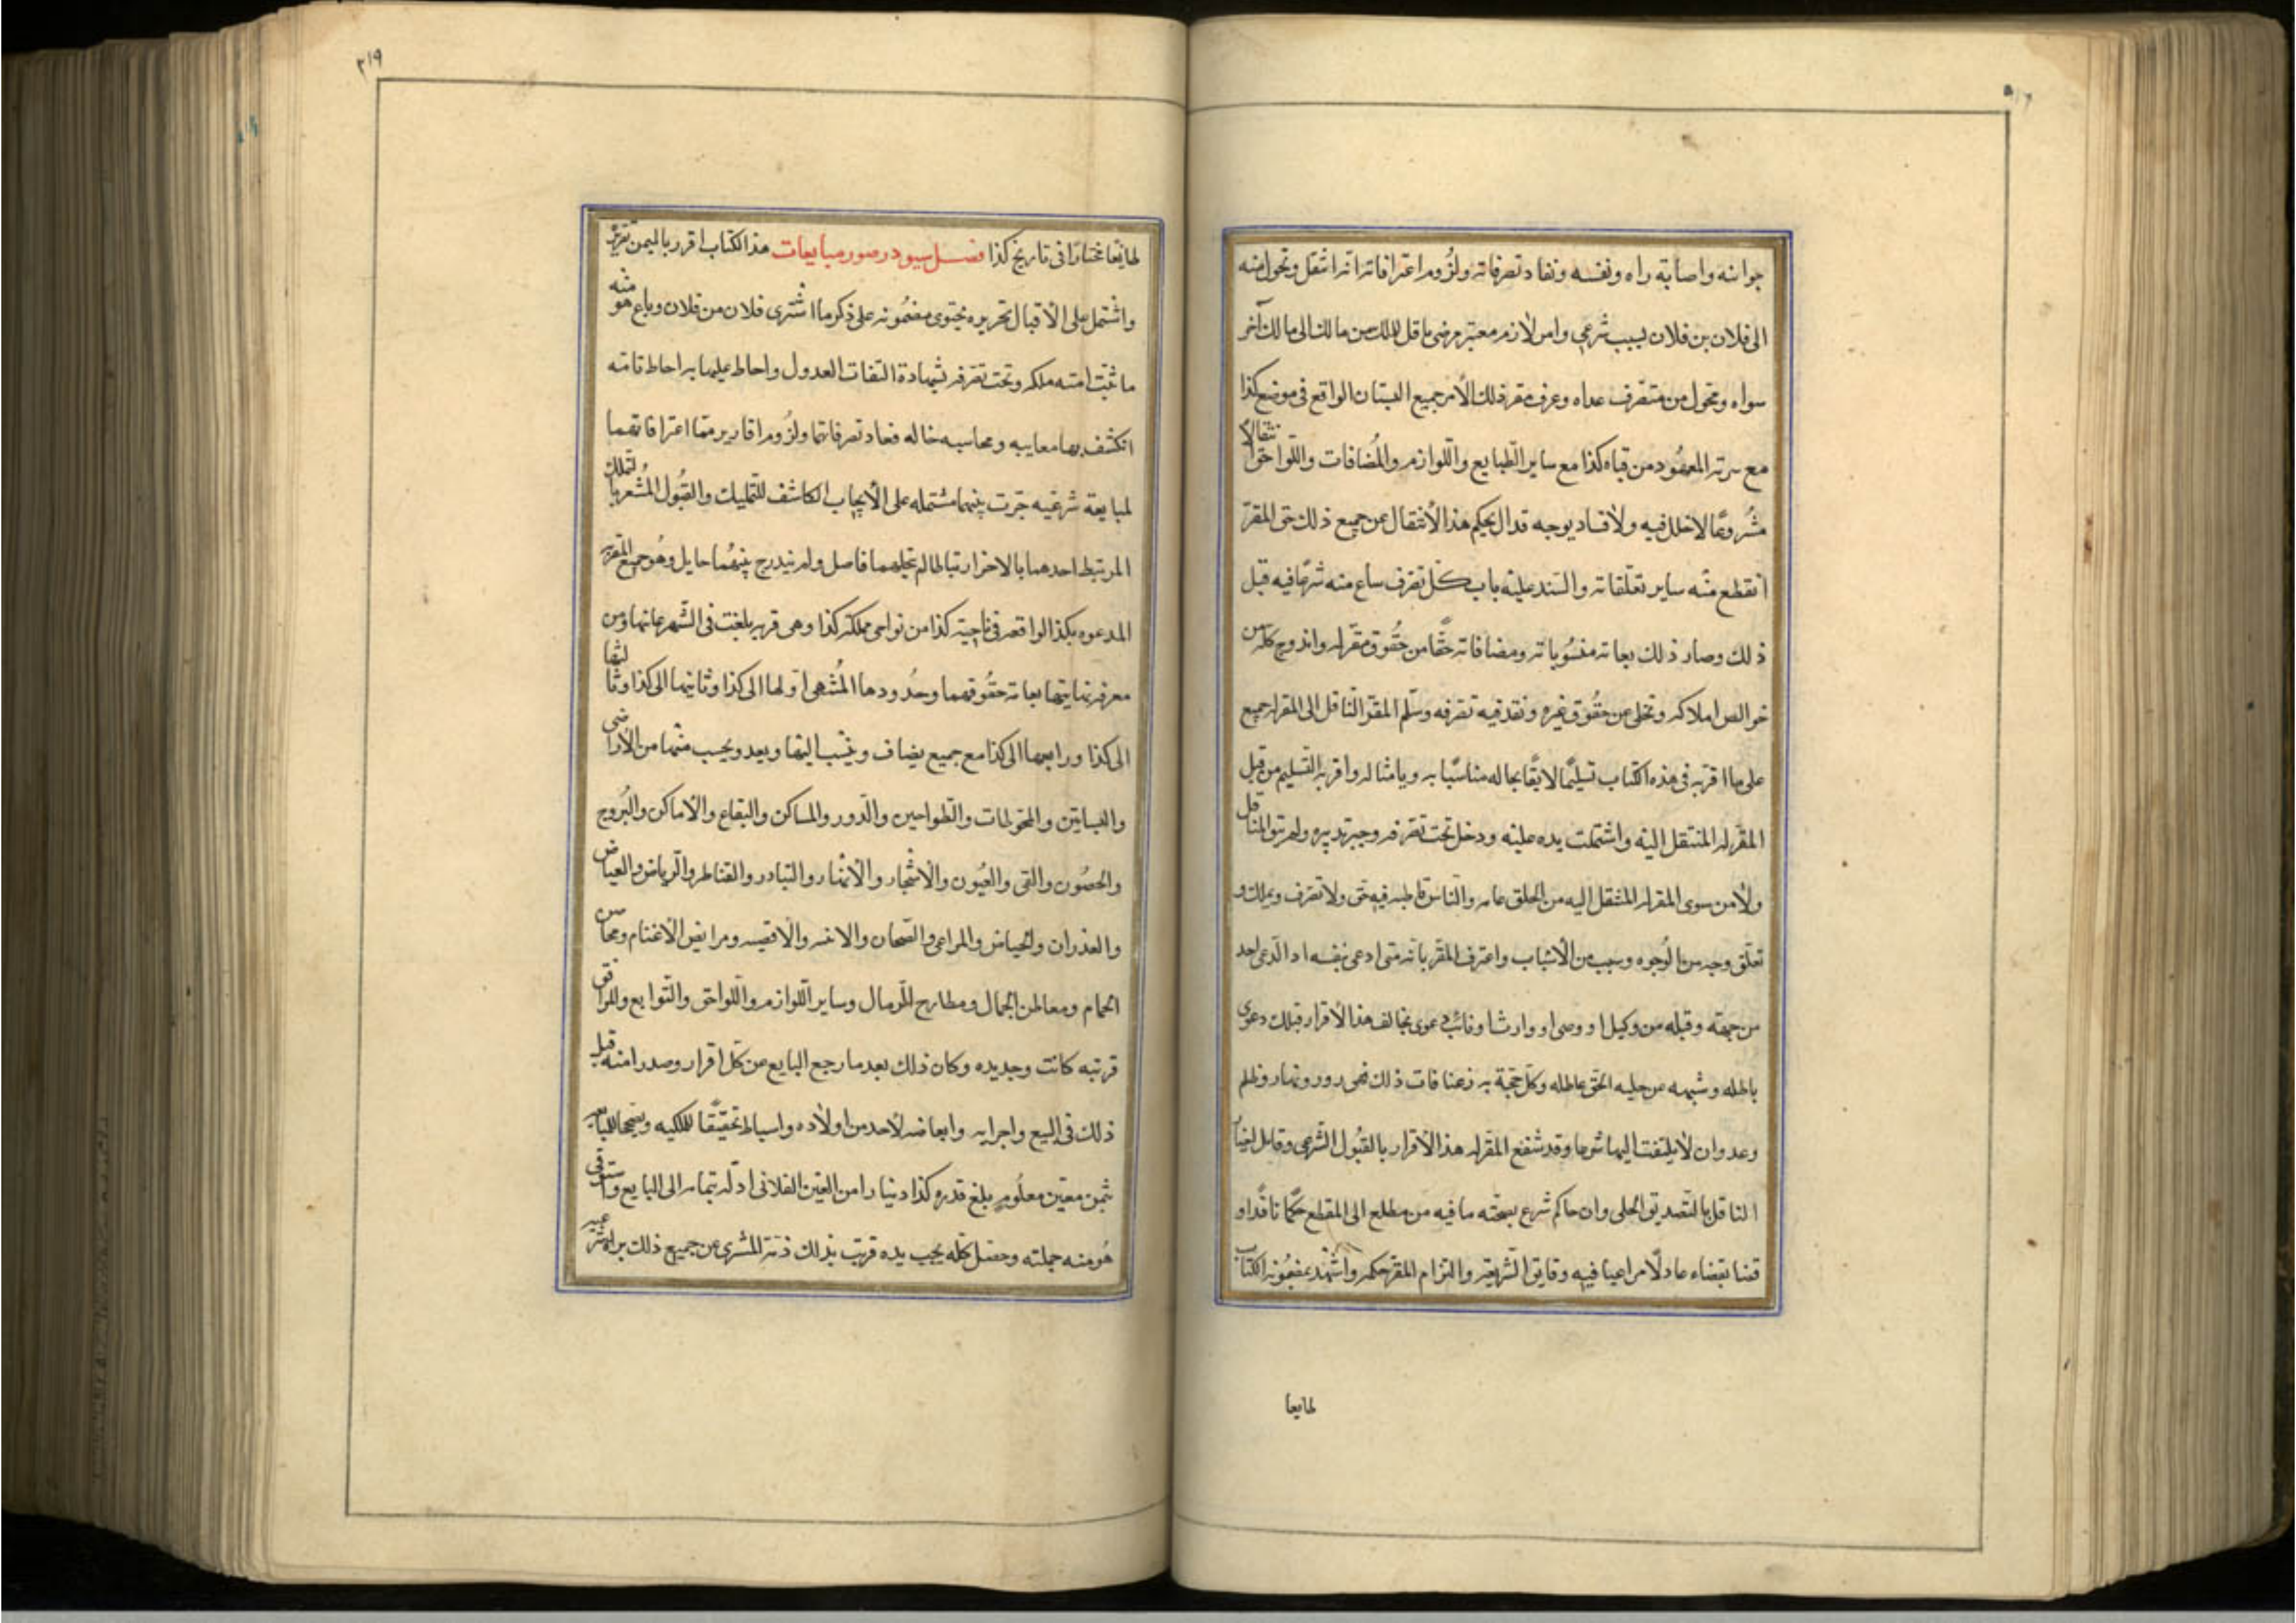 جوابنه واصابة راه ونفسه ونفاد تصرفاته ولزُوم اعترافاته انه انتقل وتحول منه
الى فلان بن فلان بسبب شرعي وامر لازم معتبر مرضى ناقل للملك من مالك الى مالك آخر
سواه ومحول من متصّرف عداه وعرف مقر ذلك الأمر جميع البستان الواقع فى موضع كذا
مع سرته المعهُود من قباه كذا مع ساير الطبايع واللّوازم والمُضافات واللّواحق انتقالًا
مشُروعًا لا خلل فيه ولا فساد بوجه قدال بحكم هذا الأنتقال عن جميع ذلك حق المقرّ
انقطع منه ساير تعلّقاته والسند عليه باب كلّ تصرف ساع منه شرعًا فيه قبل
ذلك وصار ذلك بعاته منسُوباته ومضافاته حقًّا من حقُوق مقرّله واندرج كله من
خوالص املاكه وتخلى عن حقُوق غيره ونفذ فيه تصرفه وسلّم المقرّ النّاقل الى المقرله جميع
على ما اقرّ به فى هذه الكتاب تسليمًا لايقًا بحاله مناسبًا به ويامثاله واقر به التّسليم من قبل
المقرّله المنتقل اليه واشتملت يده عليه ودخل تحت تصرّفه وحيز تدبيره ولم يبق للناقل
ولا من سوى المقرله المنتقل اليه من الخلق عامه والنّاس قاطبه فيه حقّ ولا تصرف ويملك و
تعلّق وجه من الوُجوه وسبب من الأسباب واعترف المقر بانه متى ادعى بنفسه او الدّعى احد
من جهته وقبله من وكيل او وصى او وارث او نائب دعوى يخالف هذا الأقرار فتلك دعوى
باطله وشبهه عن حليه الحقّ عاطله وكلّ حجّة به زعنا فات ذلك فهى رور وبهتان وظلم
وعدوان لا يلتفت اليها شرعا وقد شفع المقرّله هذا الأقرار بالقبُول الشّرعى وقابل اخبار
الناقل بالتّصديق الجلى وان حاكم شرع بصحّته ما فيه من مطلع الى المقطع حكمًا نافذًا و
قضا بقضاء عادلًا مراعيا فيه وقايق الشّريعة والتزام المقر حكمه واشهد بمضمُونه الكتاب
طايعا
٣١٩
طايعًا مختارًا فى تاريخ كذا فصل سيود در صور مبايعات هذا الكتاب اقرر باليمن تقريره
واشتمل على الأقبال تحريره يحتوى مضمُونه على ذكر ما اشترى فلان من فلان وباع هو منه
ما ثبت امنه ملكه وتحت تصّرفه بشهادة الثقات العدول واحاط عليهما به احاط تامّه
انكشف بهما معايبه ومحاسبه خاله فعاد تصرفاتهما ولزُوم اقارير متمّا اعترافاتهما
لمبايعة شرعيه جرت بينهما مشتمله على الأيجاب الكاشف للتمليك والقبُول المُشعر بالتملك
المرتبط احدهما بالاخر ارتباطا لم يتخللهما فاصل ولم يندرج بينهُما حايل وهُو جميع القريه
المدعوه بكذا الواقعه فى ناحية كذا من نواحى مملكة كذا وهى قريه بلغت فى الشّهر عانها ومن
معرفه نهايتها بعاته حقُوقهما وحُدودها المُشهى اولها الى كذا وثانيها الى كذا وثالثها
الى كذا ورابعها الى كذا مع جميع يضاف وينسّب اليها ويعد ويحسب منهما من الأراضى
والبساتين والمحوطات والطّواحين والدّور والمساكن والبقاع والأماكن والبُروج
والحصُون والقى والعيُون والأشجار والأنهار والبيادر والقناطر والرياض والغياض
والغدران والحياض والمراعى والصّحان والاخر والاقيسه ومرابض الأغنام ومحابس
الحمام ومعاطن الجمال ومطارح للرّمال وساير اللّوازم واللّواحق والتّوابع وللرافق
قرتبه كانت وجديده وكان ذلك بعد ما رجع البايع عن كلّ اقرار وصدر امنه قبل
ذلك فى البيع واجرايه وابعاضه لأحد من اولاده واسباط تحقيقًا للملكيه وتصحيحا للبايعه
بثمن معيّن معلُوم بلغ قدره كذا دينارا من العين الفلانى ادّله بتمامه الى البايع واستوفى
هُو منه جملته وحصل كلّه بحيث يده قربت بذلك ذمّة المشرى عن جميع ذلك براه شرعيه